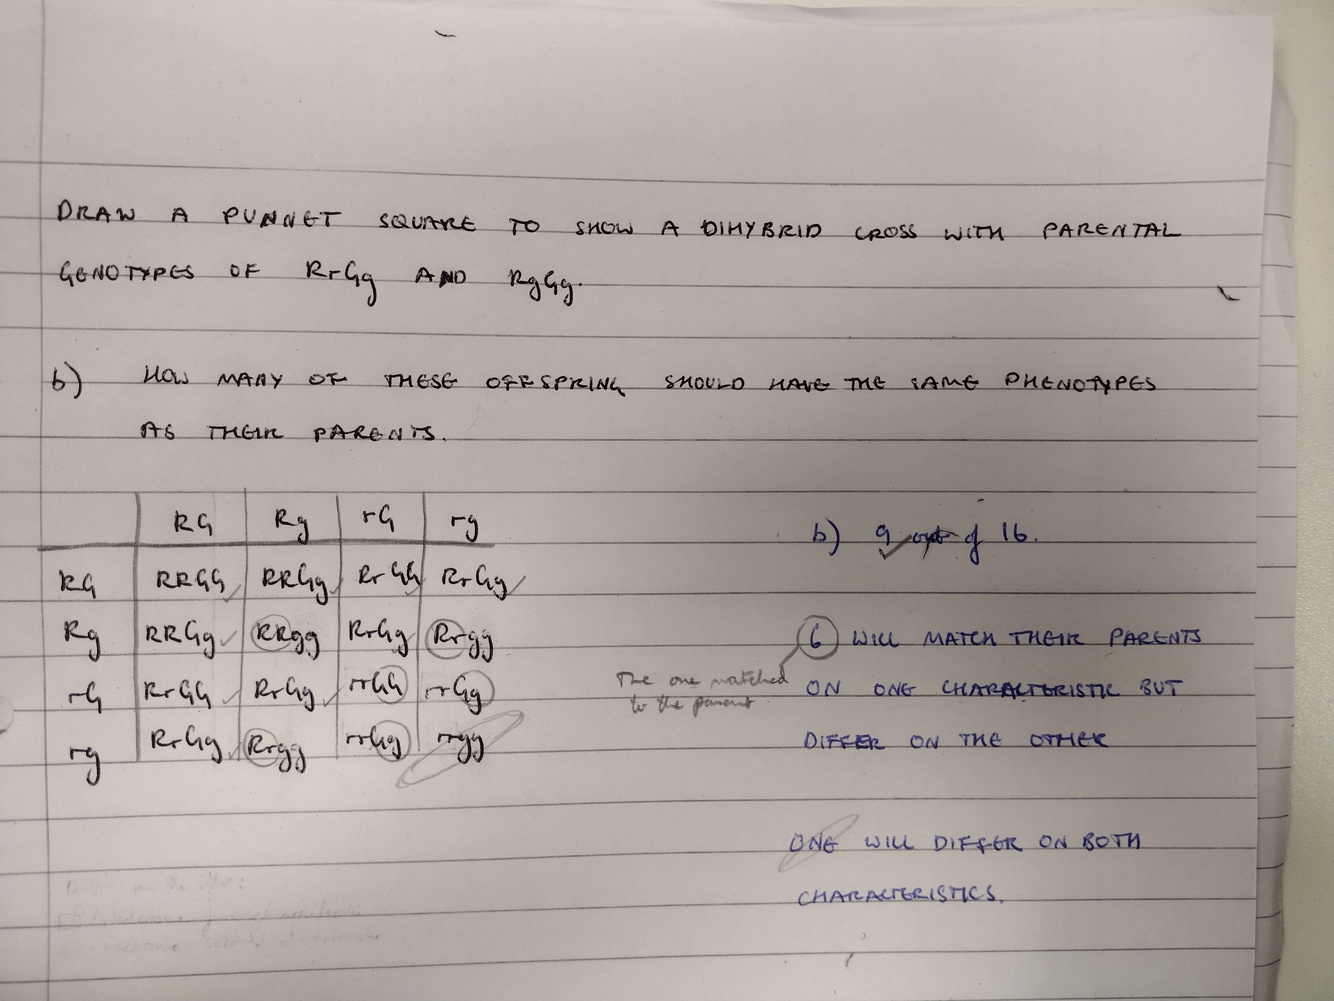 DRAW A PUNNET SQUARE TO SHOW A DIHYBRID CROSS WITH PARENTAL
GENOTYPES OF RrGg AND RgGg.
b) HOW MANY OF THESE OFFSPRING SHOULD HAVE THE SAME PHENOTYPES
AS THEIR PARENTS.
RG Rg rG rg
RG RRGG RRGg RrGG RrGg
Rg RRGg RRgg RrGg Rrgg
rG RrGG RrGg rrGG rrGg
rg RrGg Rrgg rrGg rrgg
b) 9 out of 16.
6 WILL MATCH THEIR PARENTS
ON ONE CHARACTERISTIC BUT
DIFFER ON THE OTHER
The one matched
to the parent
ONE WILL DIFFER ON BOTH
CHARACTERISTICS.